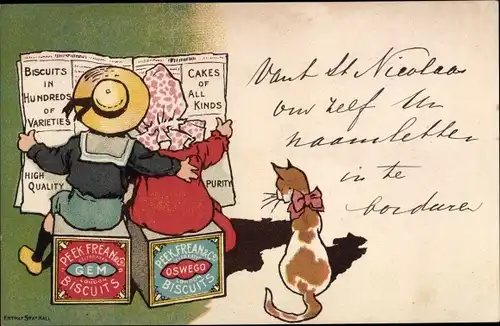 BISCUITS
IN
HUNDREDS
OF
VARIETIES
CAKES
OF
ALL
KINDS
HIGH
QUALITY
PURITY
PEEK FREAN & Co
GEM
LONDON
BISCUITS
PEEK FREAN & Co
OSWEGO
LONDON
BISCUITS
Van St Nicolaas
om zelf Uw
naamletter
in te
borduren